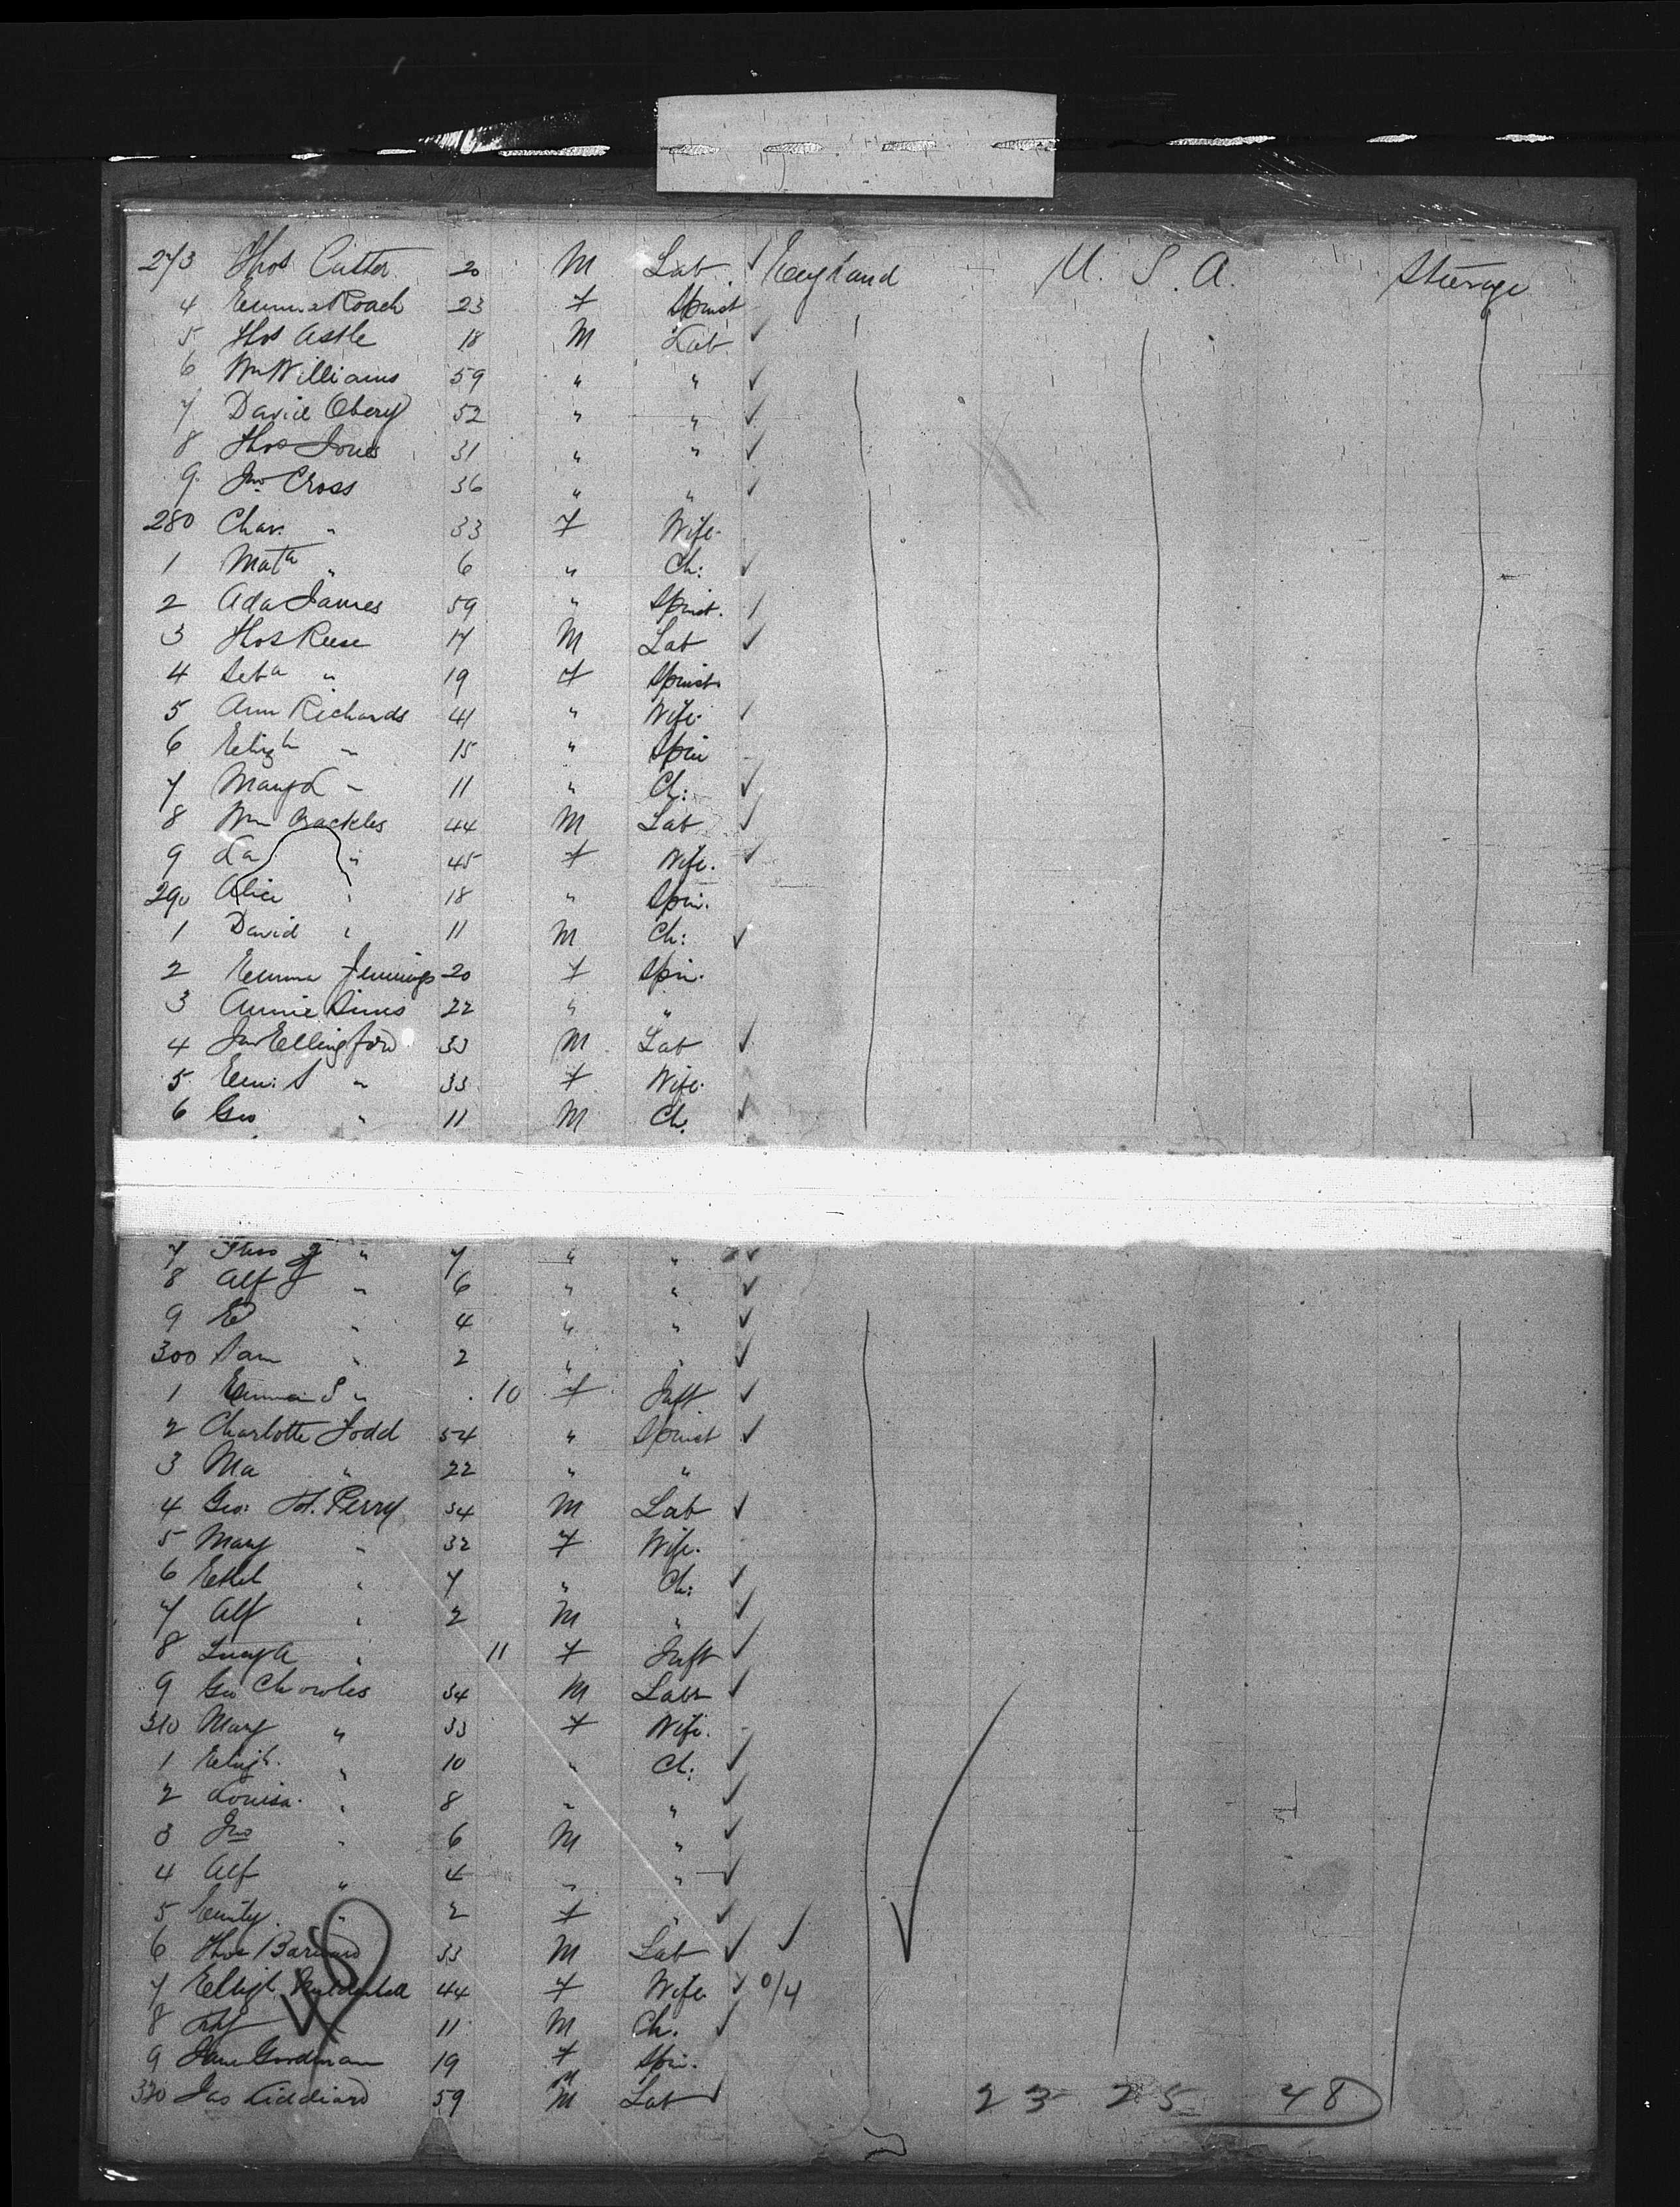 273 Thos Cutter 20 M Lab. ✓ England U. S. A. Steerage
4 Emma Roach 23 F Spinst
5 Thos Astle 18 M Lab. ✓
6 Wm Williams 59 " " ✓
7 David Obery 52 " " ✓
8 Thos Jones 31 " " ✓
9 Jno Cross 36 " " ✓
280 Char. " 33 F Wife.
1 Mata " 6 " Ch: ✓
2 Ada James 59 " Spinst. /
3 Thos Rees 17 M Lab ✓
4 " 19 F Spinst.
5 Ann Richards 41 " Wife. ✓
6 Elizh " 15 " Spin
7 Mary L " 11 " Ch: ✓
8 Wm Brackles 44 M Lab ✓
9 La " 45 F Wife. ✓
290 Alice " 18 " Spin.
1 David " 11 M Ch: ✓
2 Emma Jennings 20 F Spin.
3 Annie Sims 22 " "
4 Jno Ellingford 33 M Lab ✓
5 Em. S " 33 F Wife.
6 Geo " 11 M Ch. ✓
7 Thos J " 7 " " ✓
8 Alf J " 6 " " ✓
9 E " 4 " " ✓
300 Sam " 2 " " ✓
1 Emma S " 10 F Inft. ✓
2 Charlotte Todd 54 " Spinst ✓
3 Ma " 22 " "
4 Geo: Hy. Perry 34 M Lab ✓
5 Mary " 32 F Wife.
6 Ethel " 7 " Ch: ✓
7 Alf " 2 M " ✓
8 Lucy A " 11 F Inft ✓
9 Geo Chowles 34 M Labr ✓
310 Mary " 33 F Wife.
1 Elizh. " 10 " Ch: ✓
2 Louisa. " 8 " " ✓
3 Jno " 6 M " ✓
4 Alf " 4 " " ✓
5 Emily " 2 F " ✓
6 Thos Barnard 33 M Lab ✓ ✓
7 Elizh 44 F Wife ✓ 0/4
8 11 M Ch. ✓
9 Jane Goodman 19 F Spin.
320 Jas Liddiard 59 M Lab ✓ 23 25 48